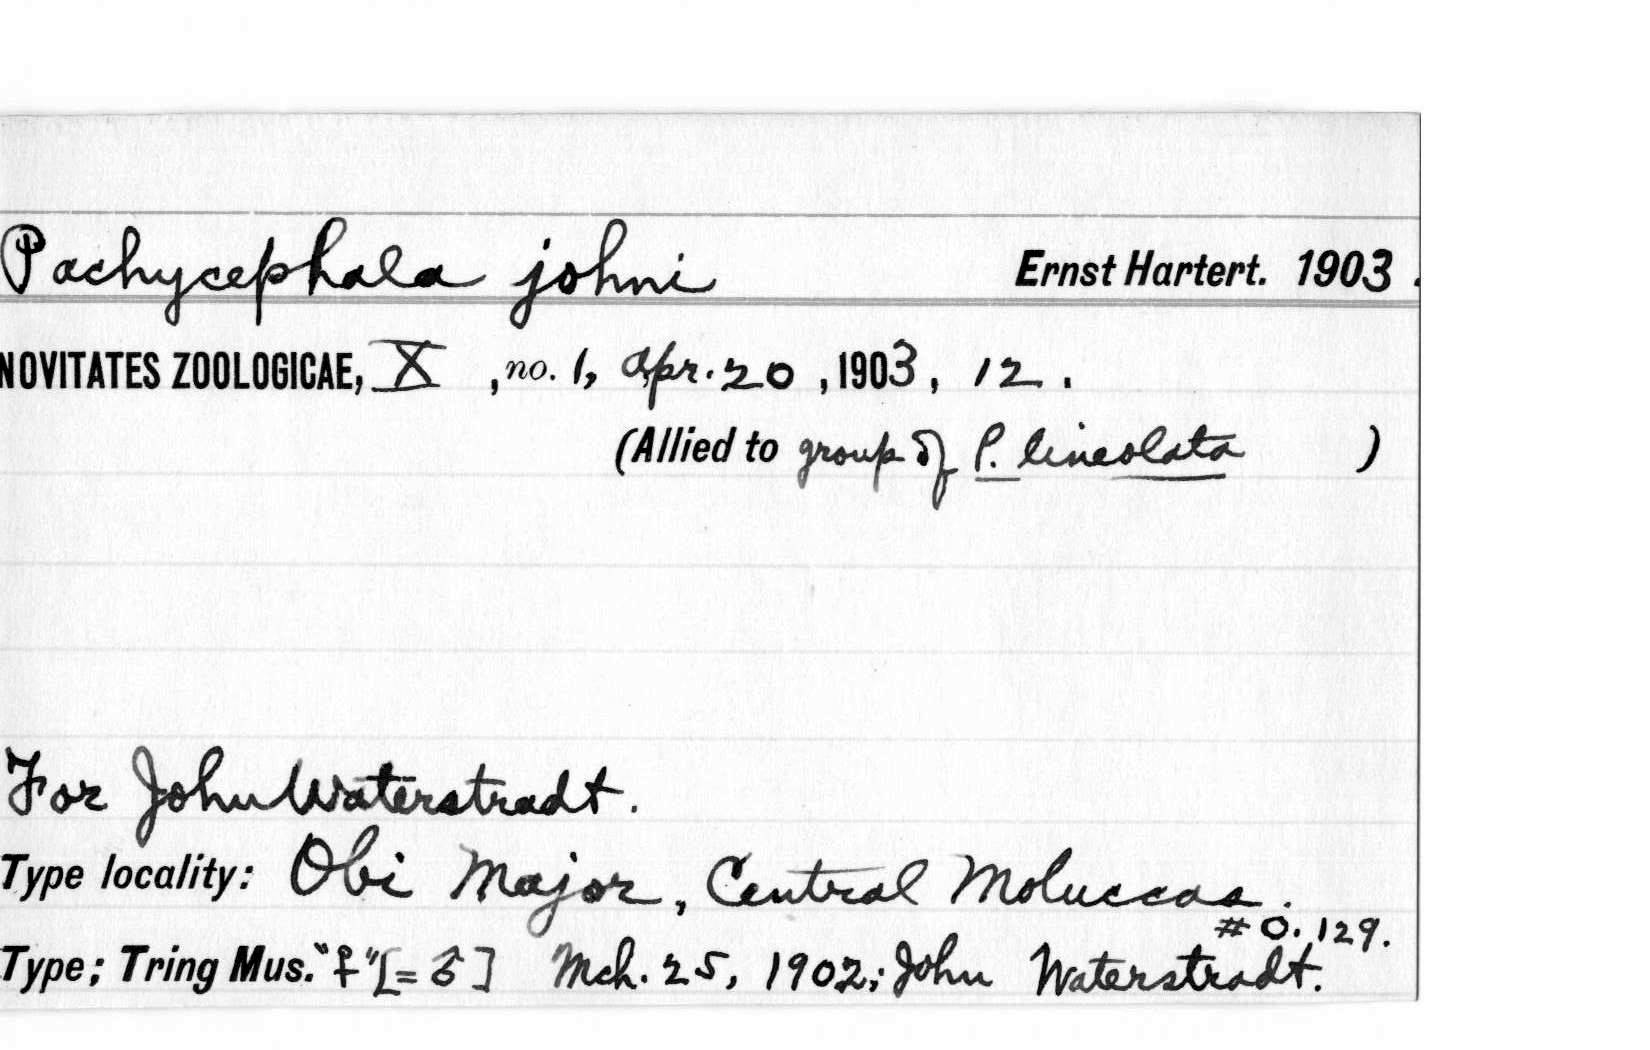 Pachycephala johni Ernst Hartert. 1903.
NOVITATES ZOOLOGICAE, X, no. 1, Apr. 20, 1903, 12.
(Allied to group of P. lineolata)
For John Waterstradt.
Type locality: Obi Major, Central Moluccas.
#O.129.
Type; Tring Mus. "♀" [= ♂] Mch. 25, 1902; John Waterstradt.